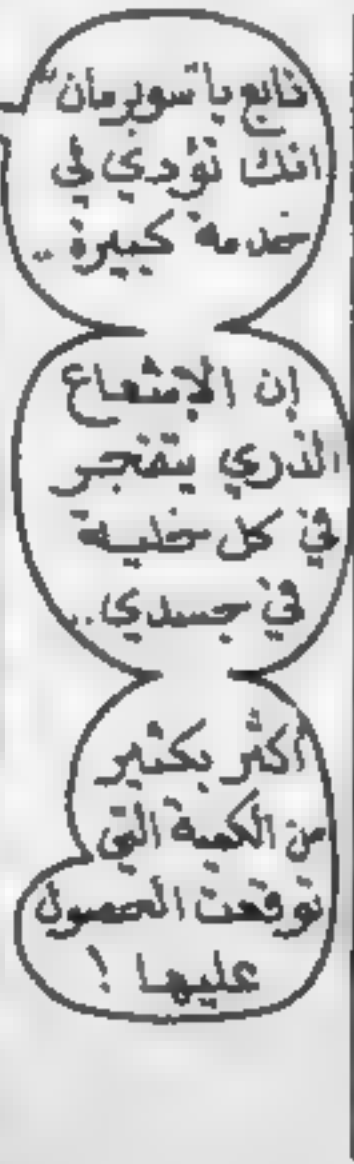 تابع يا "سوبرمان"
انك تؤدي لي
خدمة كبيرة ..
إن الإشعاع
الذري يتفجر
في كل خلية
في جسدي ..
أكثر بكثير
من الكمية التي
توقعت الحصول
عليها !